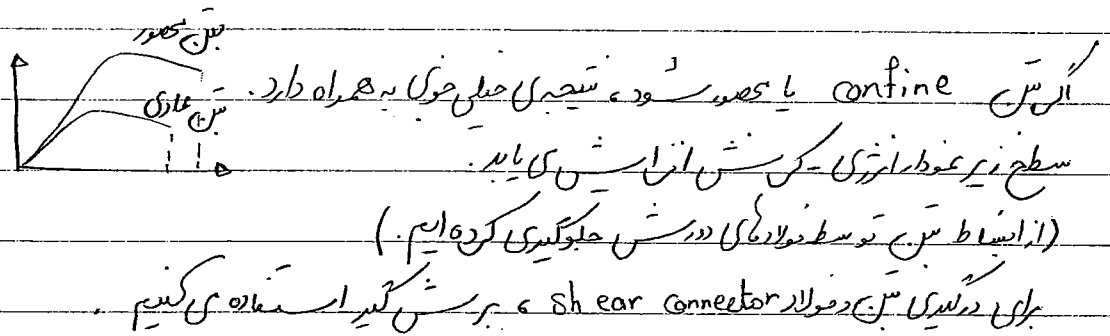 بتن محصور
بتن عادی
اگر بتن confine یا محصور شود، نتیجه‌ی خیلی خوبی به همراه دارد.
سطح زیر نمودار انرژی - کرنش افزایش می یابد.
(از انبساط بتن توسط فولادهای دورش جلوگیری کرده ایم.)
برای درگیری بتن و فولاد shear connector ، برش گیر استفاده می کنیم.